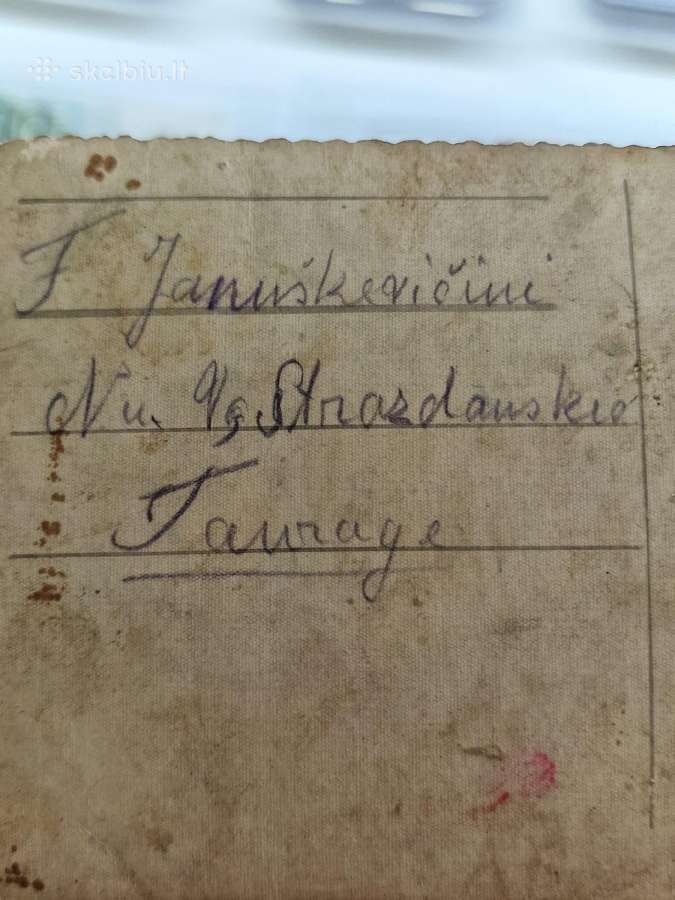 skelbiu.lt
F Januškevičiui
Nu. V, Strazdauskio
Taurage